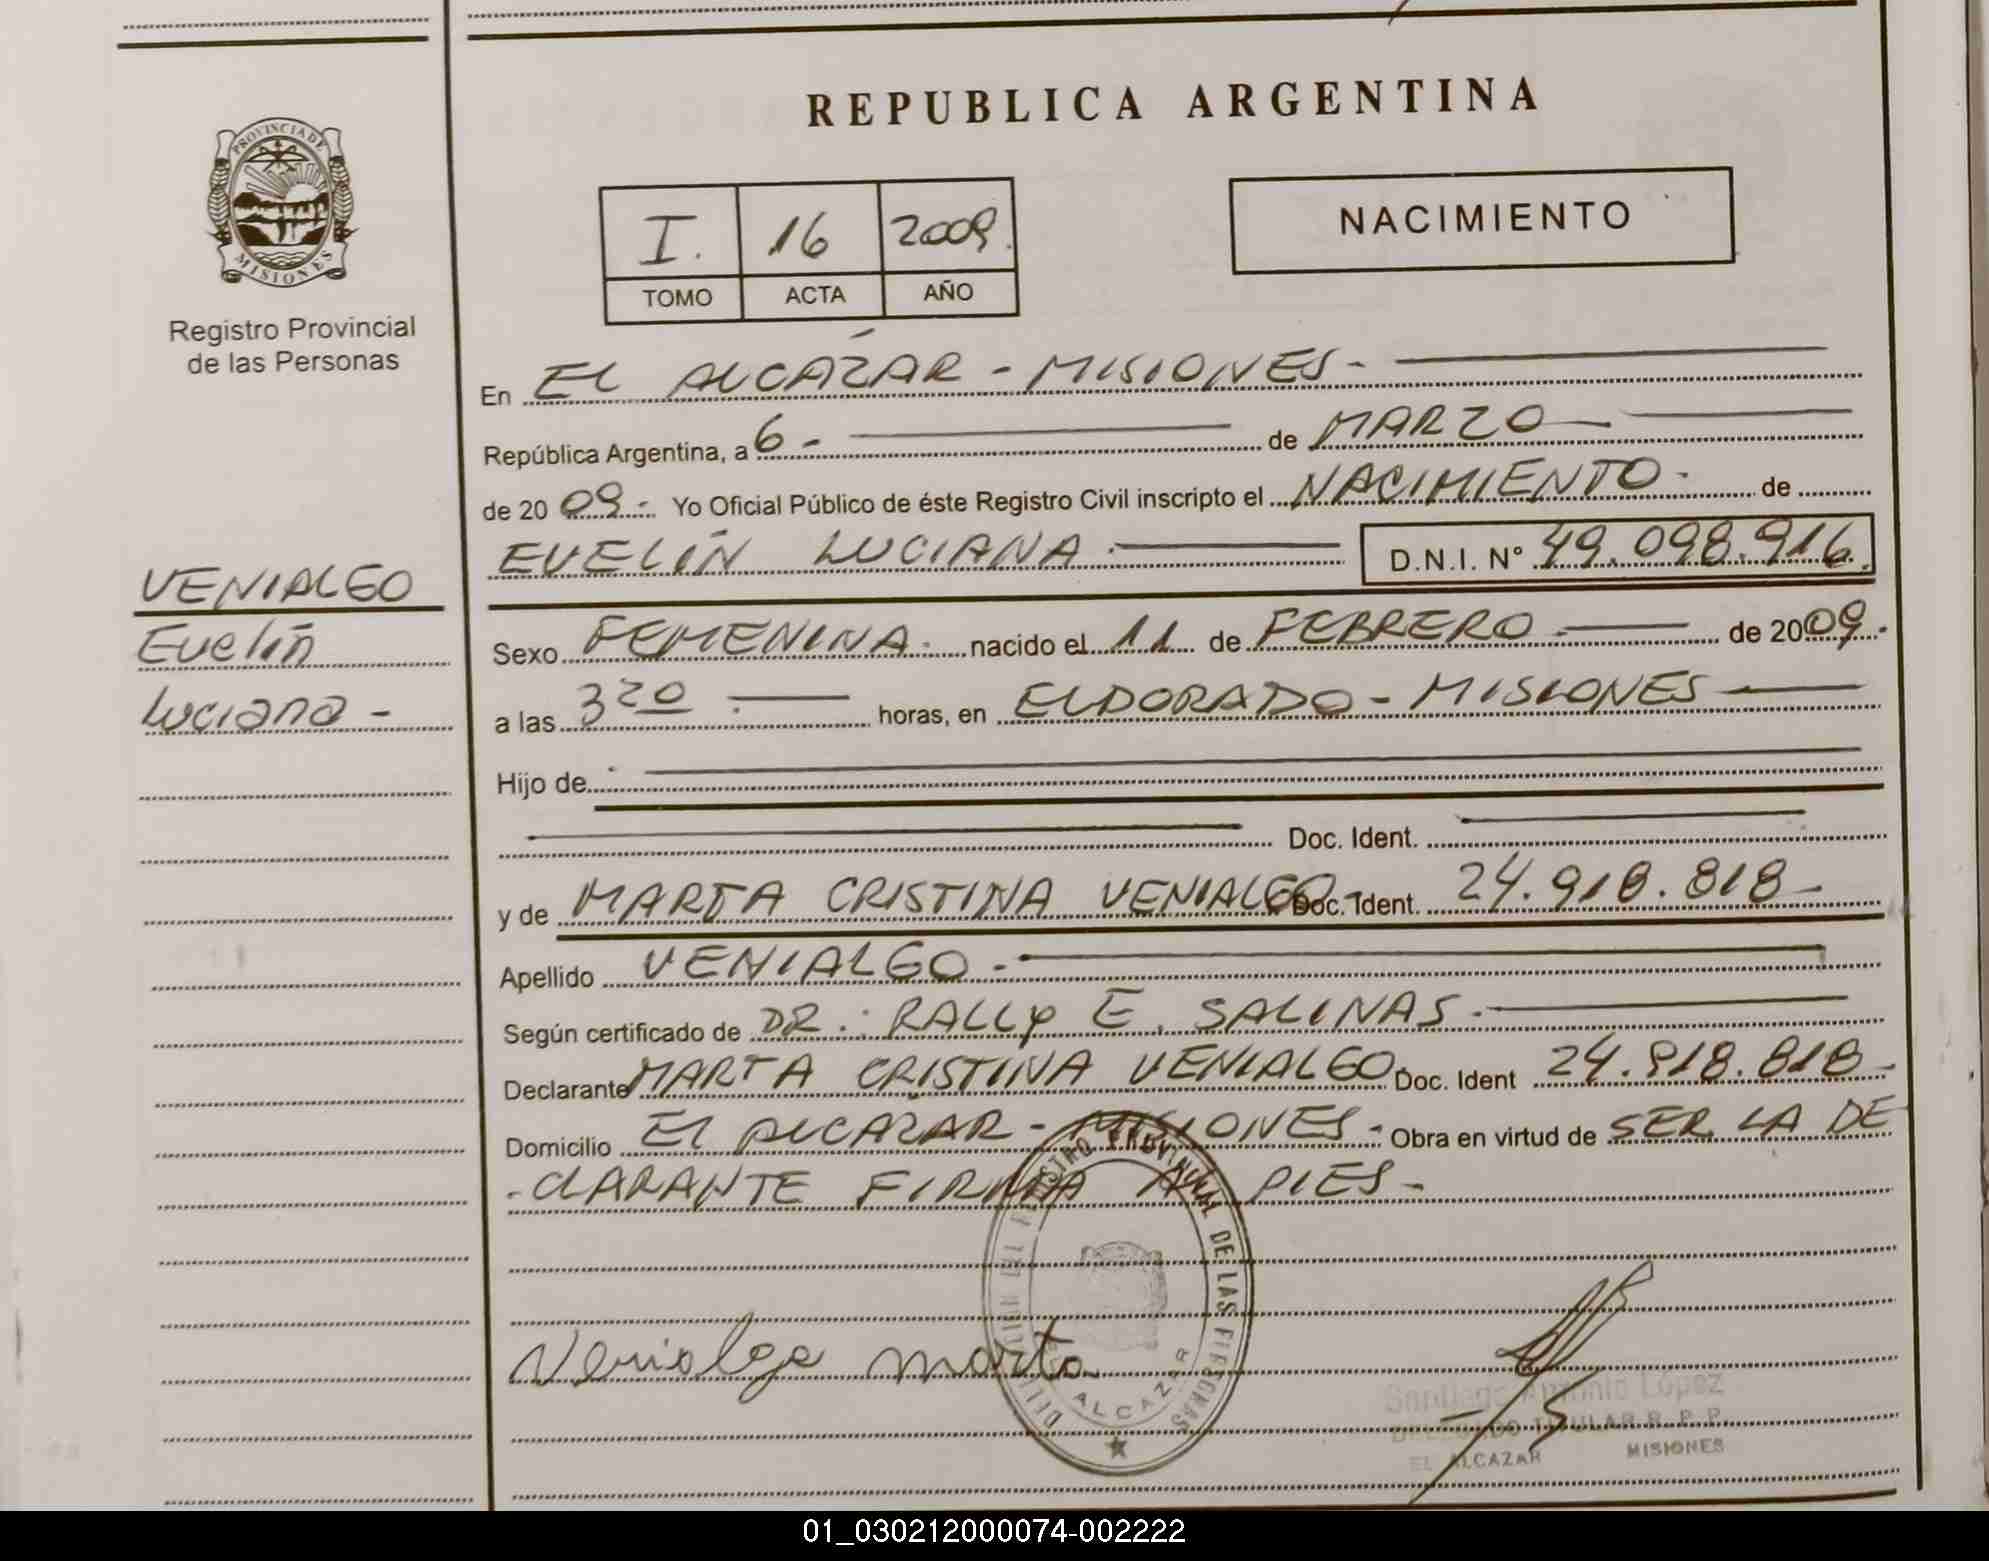 REPUBLICA ARGENTINA
PROVINCIA DE
MISIONES
Registro Provincial
de las Personas
I. 16 2009.
TOMO ACTA AÑO
NACIMIENTO
En EL ALCÁZAR - MISIONES -
República Argentina, a 6 - de MARZO
de 20 09 - Yo Oficial Público de éste Registro Civil inscripto el NACIMIENTO - de
EVELÍN LUCIANA . D.N.I. N° 49.098.916.
VENIALGO
Evelín
Luciana -
Sexo FEMENINA . nacido el 11 de FEBRERO . de 2009.
a las 3 20 . horas, en ELDORADO - MISIONES
Hijo de
Doc. Ident.
y de MARTA CRISTINA VENIALGO Doc. Ident. 24.918.818 -
Apellido VENIALGO -
Según certificado de DR.: RALLY E. SALINAS .
Declarante MARTA CRISTINA VENIALGO. Doc. Ident 24.918.818 -
Domicilio El ALCAZAR - MISIONES - Obra en virtud de SER LA DE
- CLARANTE FIRMA A PIES -
REGISTRO PROVINCIAL DE LAS PERSONAS
ALCAZAR
Venialgo marta
Santiago Antonio López
DELEGADO TITULAR R. P. P.
EL ALCAZAR MISIONES
01_030212000074-002222